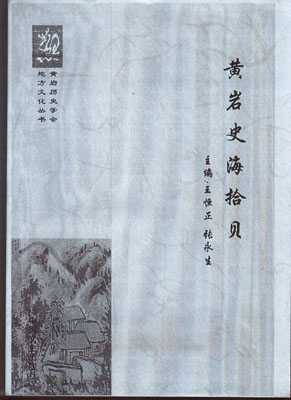 黄岩史海拾贝
主编·王恒正 张永生
黄岩历史学会
地方文化丛书